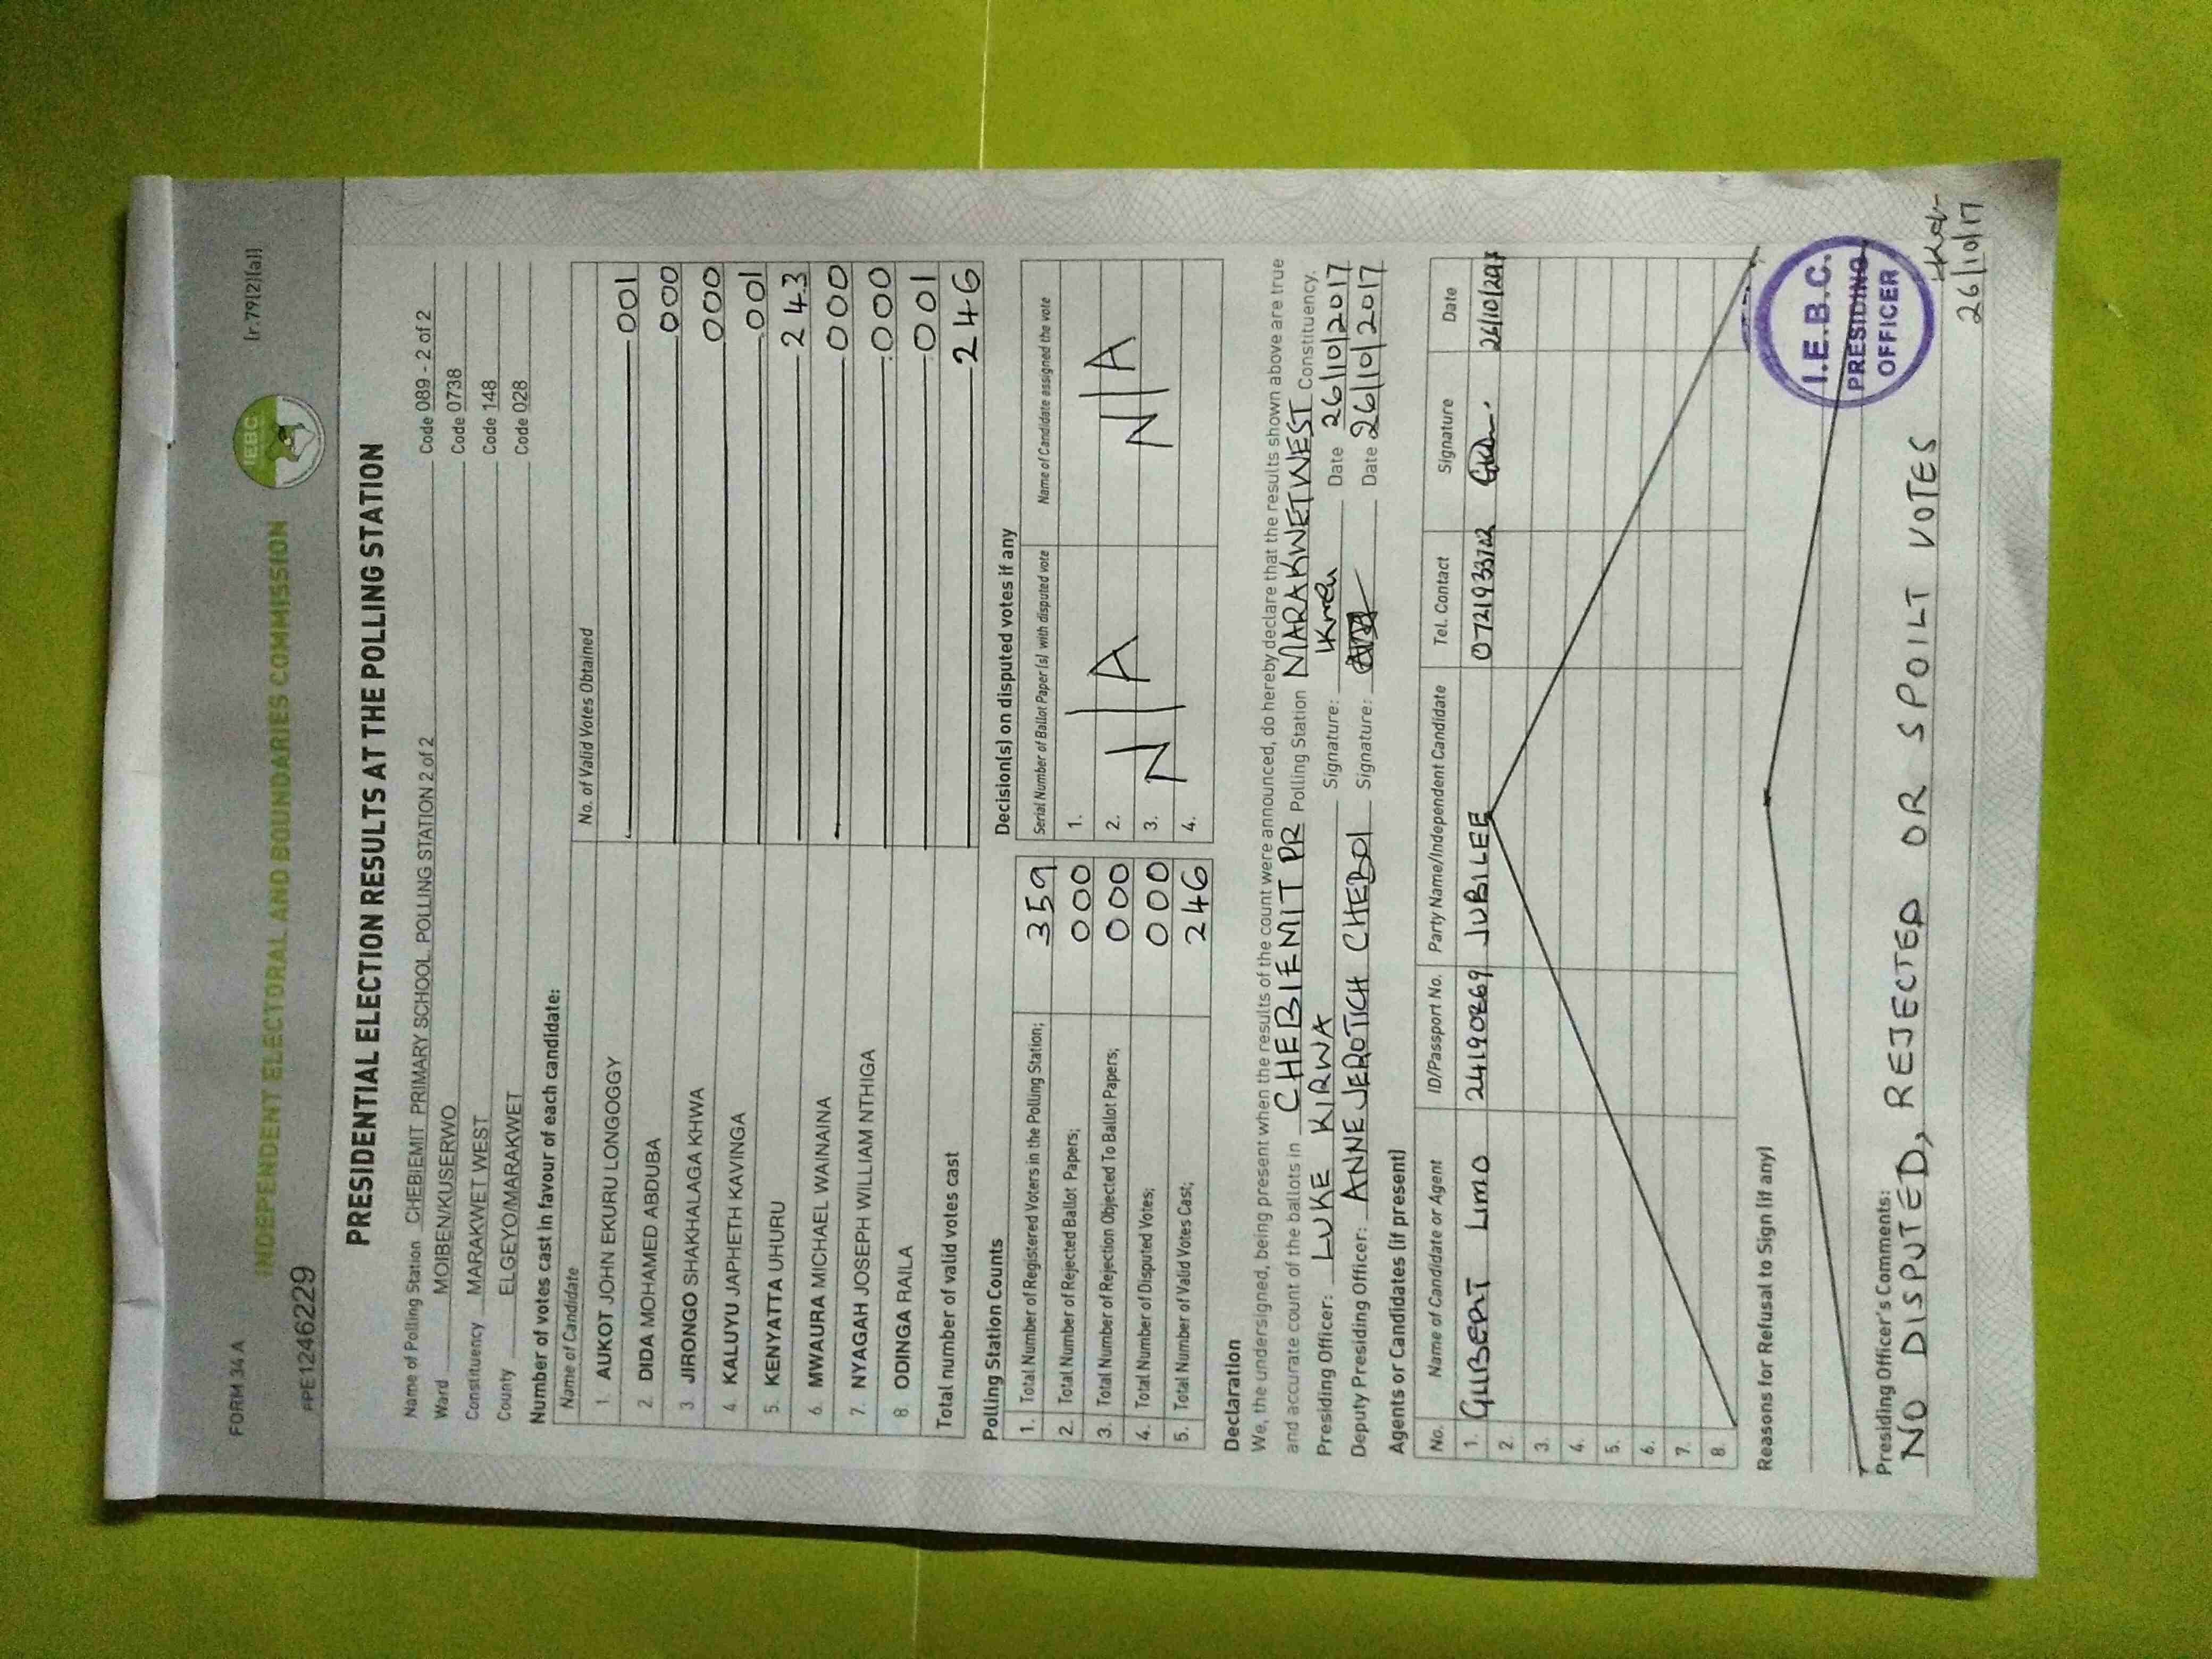 FORM 34A
[r.79(2)(a)]
IEBC
INDEPENDENT ELECTORAL AND BOUNDARIES COMMISSION
PPE1246229
PRESIDENTIAL ELECTION RESULTS AT THE POLLING STATION
Name of Polling Station CHEBIEMIT PRIMARY SCHOOL POLLING STATION 2 of 2 Code 089 - 2 of 2
Ward MOIBEN/KUSERWO Code 0738
Constituency MARAKWET WEST Code 148
County ELGEYO/MARAKWET Code 028
Number of votes cast in favour of each candidate:
Name of Candidate No. of Valid Votes Obtained
1. AUKOT JOHN EKURU LONGOGGY 001
2. DIDA MOHAMED ABDUBA 000
3. JIRONGO SHAKHALAGA KHWA 000
4. KALUYU JAPHETH KAVINGA 001
5. KENYATTA UHURU 243
6. MWAURA MICHAEL WAINAINA 000
7. NYAGAH JOSEPH WILLIAM NTHIGA 000
8. ODINGA RAILA 001
Total number of valid votes cast 246
Polling Station Counts
1. Total Number of Registered Voters in the Polling Station; 359
2. Total Number of Rejected Ballot Papers; 000
3. Total Number of Rejection Objected To Ballot Papers; 000
4. Total Number of Disputed Votes; 000
5. Total Number of Valid Votes Cast; 246
Decision(s) on disputed votes if any
Serial Number of Ballot Paper (s) with disputed vote Name of Candidate assigned the vote
1.
2. N/A N/A
3. N/A N/A
4.
Declaration
We, the undersigned, being present when the results of the count were announced, do hereby declare that the results shown above are true
and accurate count of the ballots in CHEBIEMIT PR Polling Station MARAKWET WEST Constituency.
Presiding Officer: LUKE KIRWA Signature: Date 26/10/2017
Deputy Presiding Officer: ANNE JEROTICH CHEBOI Signature: Date 26/10/2017
Agents or Candidates (if present)
No. Name of Candidate or Agent ID/Passport No. Party Name/Independent Candidate Tel. Contact Signature Date
1. GILBERT LIMO 24190269 JUBILEE 26/10/2017
2.
3.
4.
5.
6.
7.
8.
Reasons for Refusal to Sign (if any)
I.E.B.C.
PRESIDING
OFFICER
Presiding Officer's Comments:
NO DISPUTED, REJECTED OR SPOILT VOTES
26/10/17